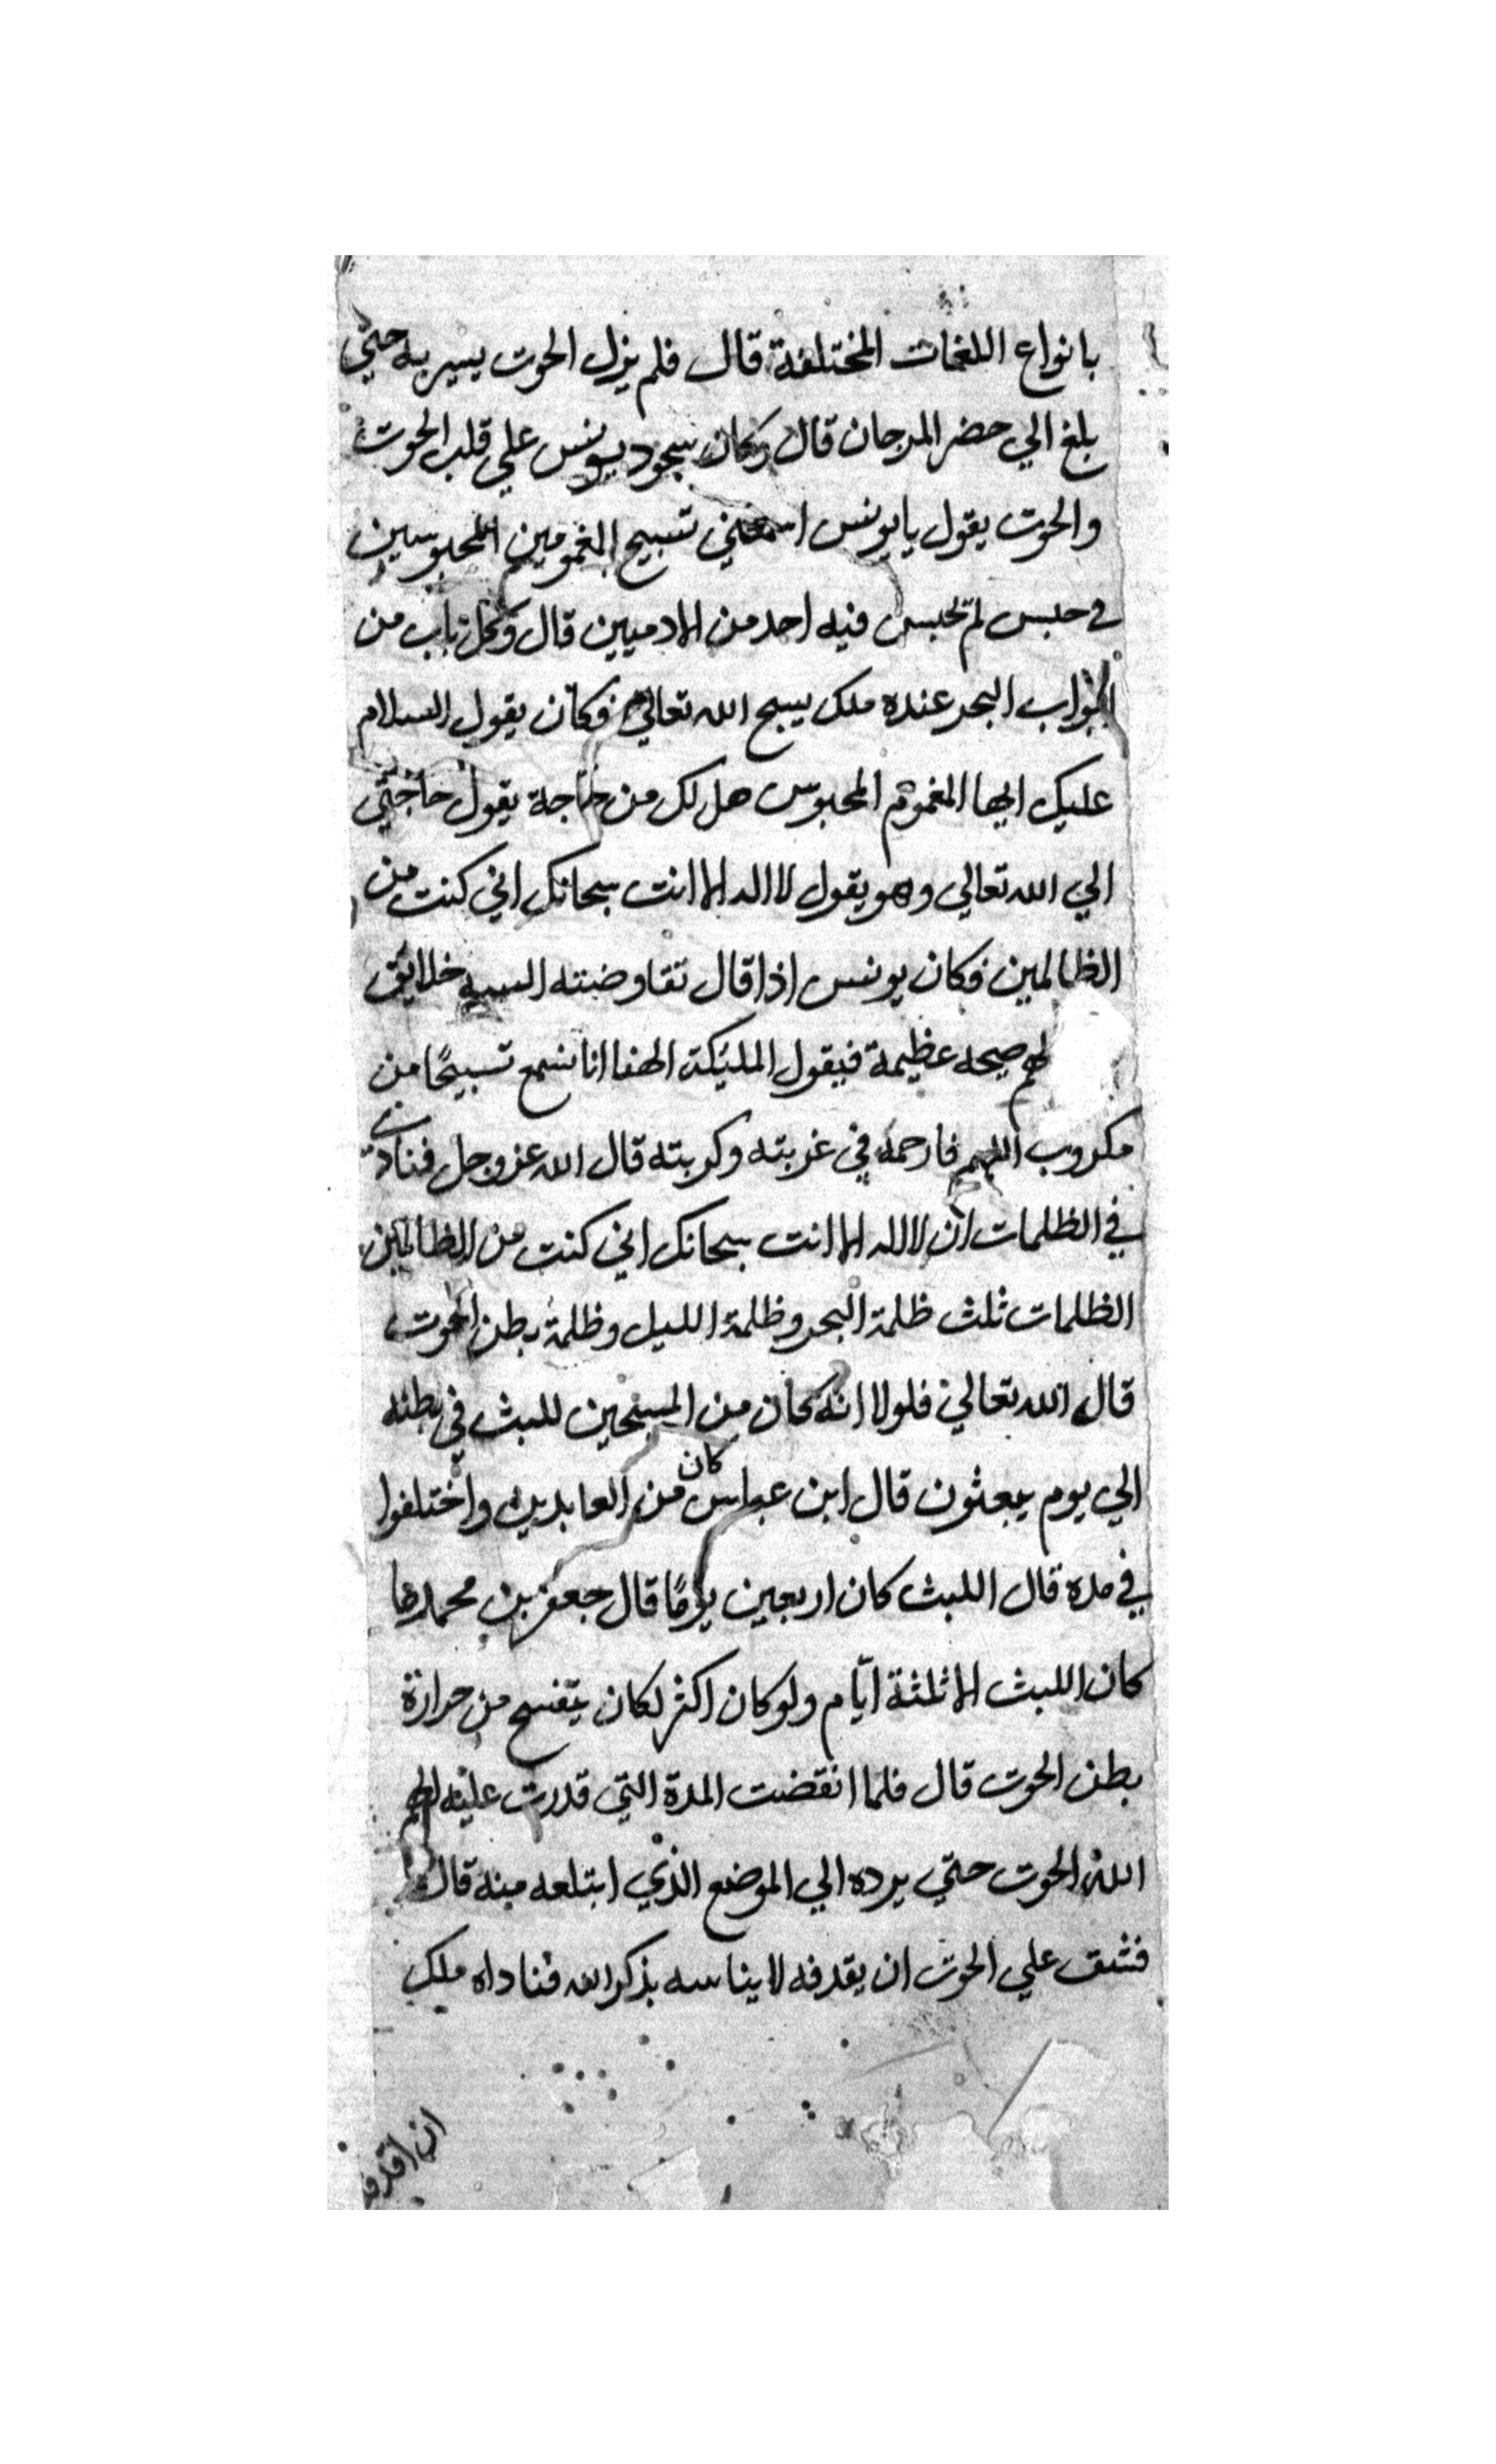 بانواع اللغات المختلفة قال فلم يزل الحوت يسير به حتي
بلغ الي حضر المرجان قال وكان سجود يونس علي قلب الحوت
والحوت يقول يا يونس اسمعني تسبيح المغمومين المحبوسين
في حبس لم يحبس فيه احد من الادميين قال وكل باب من
ابواب البحر عنده ملك يسبح الله تعالي فكان يقول السلام
عليك ايها المغموم المحبوس هل لك من حاجة يقول حاجتي
الي الله تعالي وهو يقول لا اله الا انت سبحانك اني كنت من
الظالمين فكان يونس اذا قال خلايق
لهم صيحه عظيمة فيقول المليكة الهنا انا نسمع تسبيحًا من
مكروب اللهم فارحمه في غربته وكربته قال الله عز وجل فنادي
في الظلمات ان لا اله الا انت سبحانك اني كنت من الظالمين
الظلمات ثلث ظلمة البحر وظلمة الليل وظلمة بطن الحوت
قال الله تعالي فلولا انه كان من المسبحين للبث في بطنه
الي يوم يبعثون قال ابن عباس كان من العابدين واختلفوا
في مدة قال اللبث كان اربعين يومًا قال جعفر بن محمد ما
كان اللبث الا ثلثة ايّام ولو كان اكثر لكان يتفسح من حرارة
بطن الحوت قال فلما انقضت المدة التي قدرت عليه الهم
الله الحوت حتي يرده الي الموضع الذي ابتلعه منه قال
فشق علي الحوت ان يقدفه لايناسه بذكر الله فناداه ملك
ان اقدف